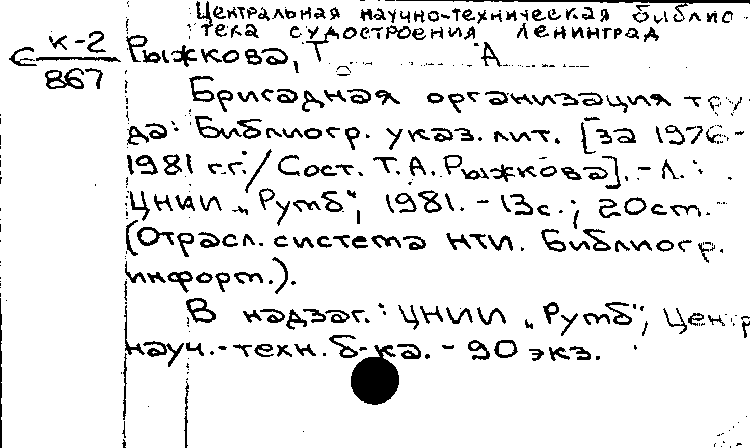 Центральная научно-техническая библио-
тека судостроения Ленинград
с к-2
867
Рыжкова, Т А
Бригадная организация тру-
да: Библиогр. указ. лит. [за 1976-
1981 г.г./ Сост. Т.А. Рыжкова]. - Л.:
ЦНИИ „Румб", 1981. - 13с.; 20см.-
(Отрасл. система НТИ. Библиогр.
информ.).
В надзаг.: ЦНИИ „Румб", Центр
науч.-техн. б-ка. - 90 экз.